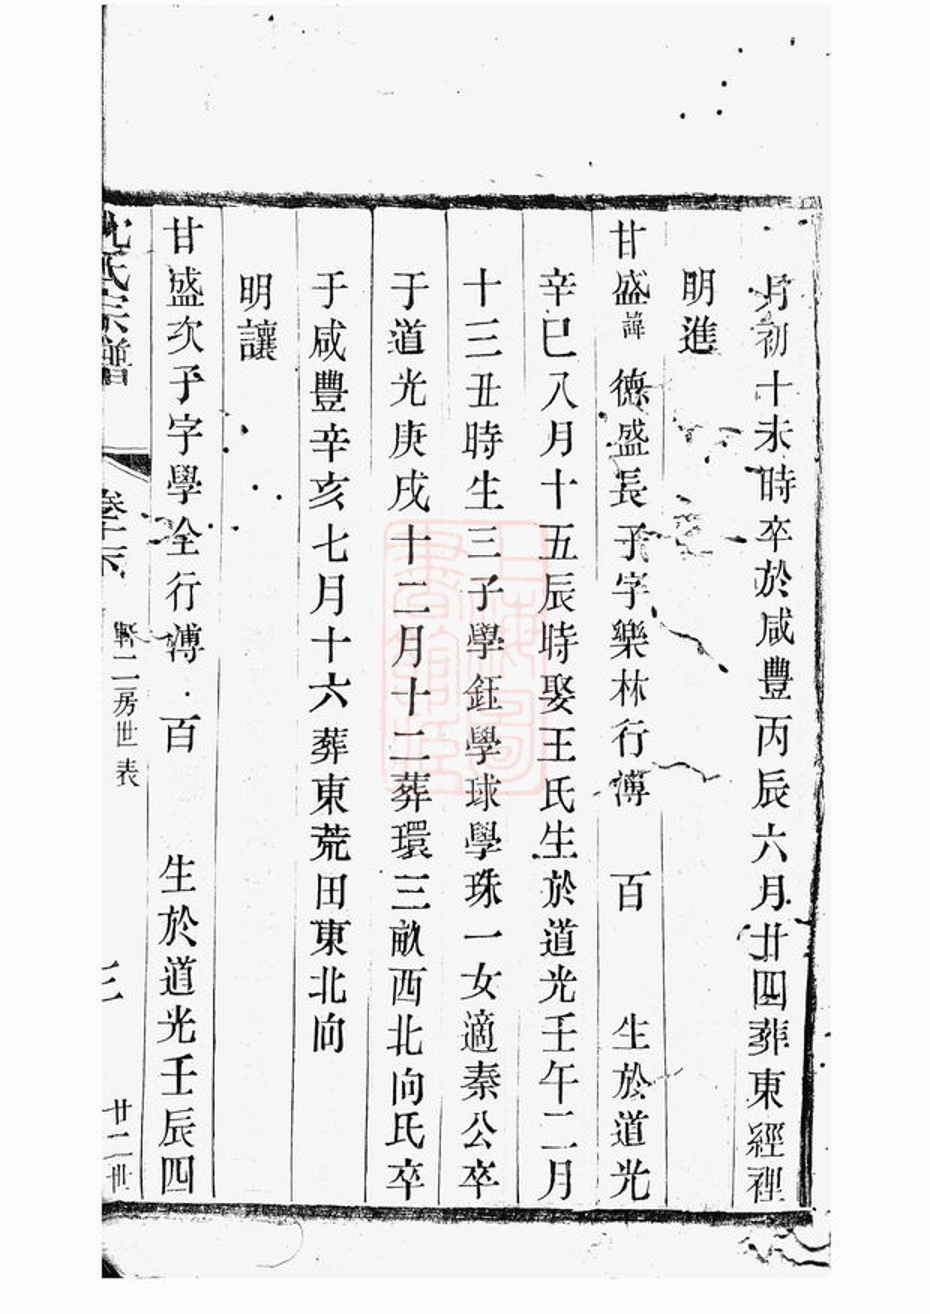 月初十未時卒於咸豐丙辰六月廿四葬東經裡
明進
甘盛諱德盛長子字樂林行溥 百 生於道光
辛巳八月十五辰時娶王氏生於道光壬午二月
十三丑時生三子學鈺學球學珠一女適秦公卒
于道光庚戌十二月十二葬環三畝西北向氏卒
于咸豐辛亥七月十六葬東荒田東北向
明讓
甘盛次子字學全行溥 百 生於道光壬辰四
沈氏宗譜
二房世表
廿二世